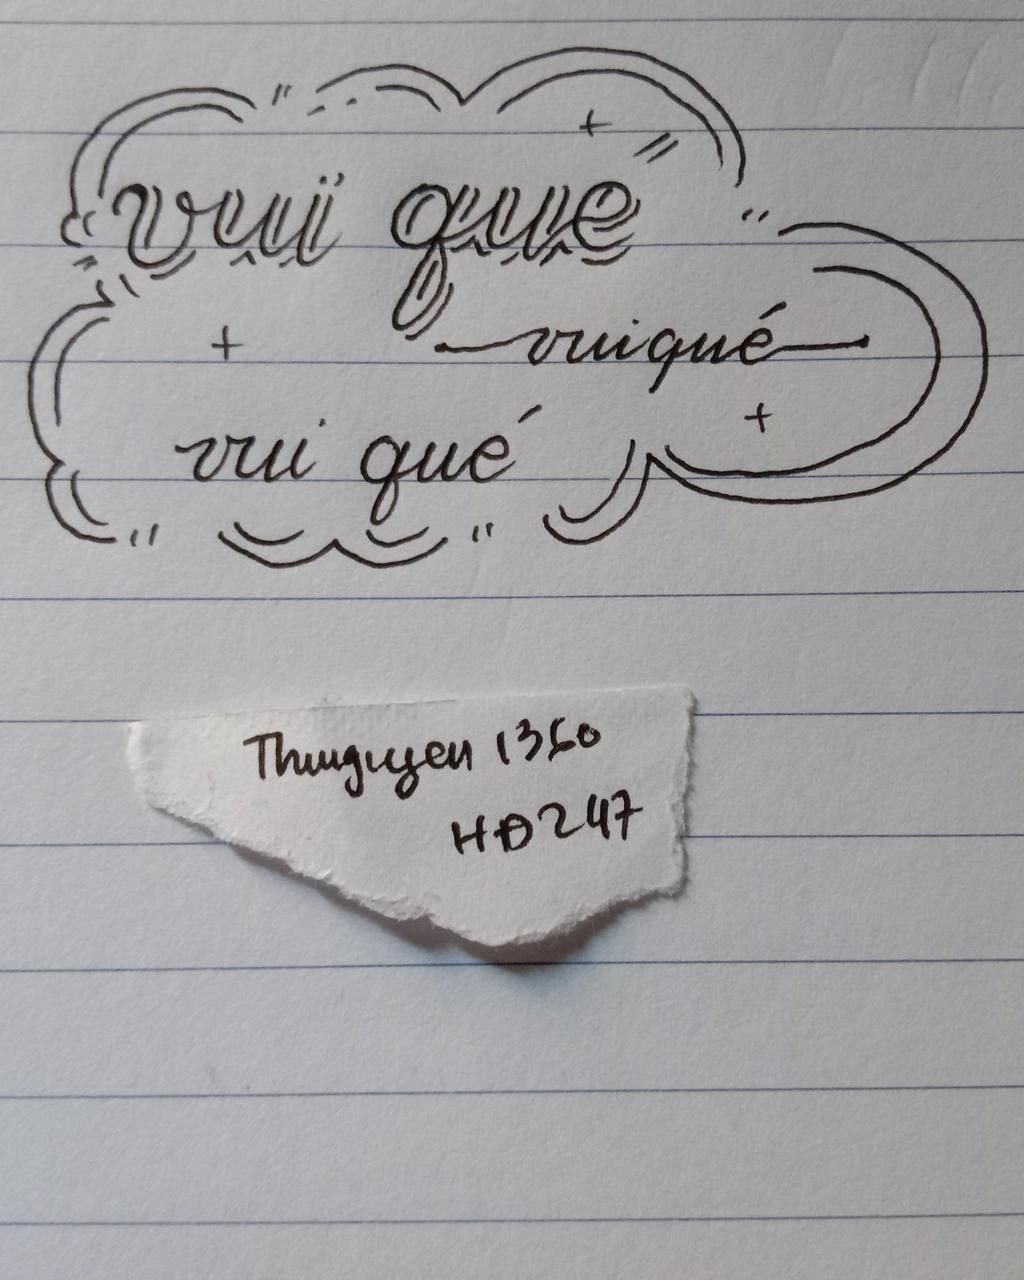 vui qué
vuiqué
vui qué
Thuuguyen 1360
HĐ247